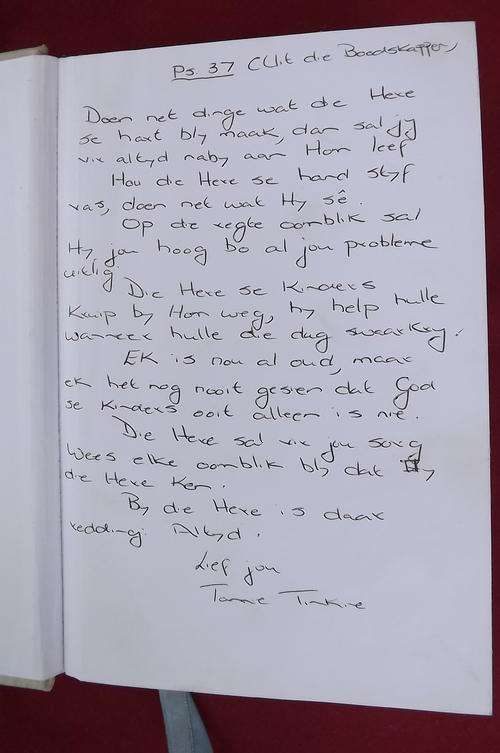 Ps. 37 (Uit die Boodskapper)
Doen net dinge wat die Here
se hart bly maak, dan sal jy
vir altyd naby aan Hom leef
Hou die Here se hand styf
vas, doen net wat Hy sê.
Op die regte oomblik sal
Hy jou hoog bo al jou probleme
uitlig
Die Here se Kinders
Kruip by Hom weg, hy help hulle
wanneer hulle die dag swaarkry.
Ek is nou al oud, maar
ek het nog nooit gesien dat God
se Kinders ooit alleen is nie.
Die Here sal vir jou sorg
Wees elke oomblik bly dat jy
die Here Ken.
By die Here is daar
redding: Altyd.
Lief jou
Tannie